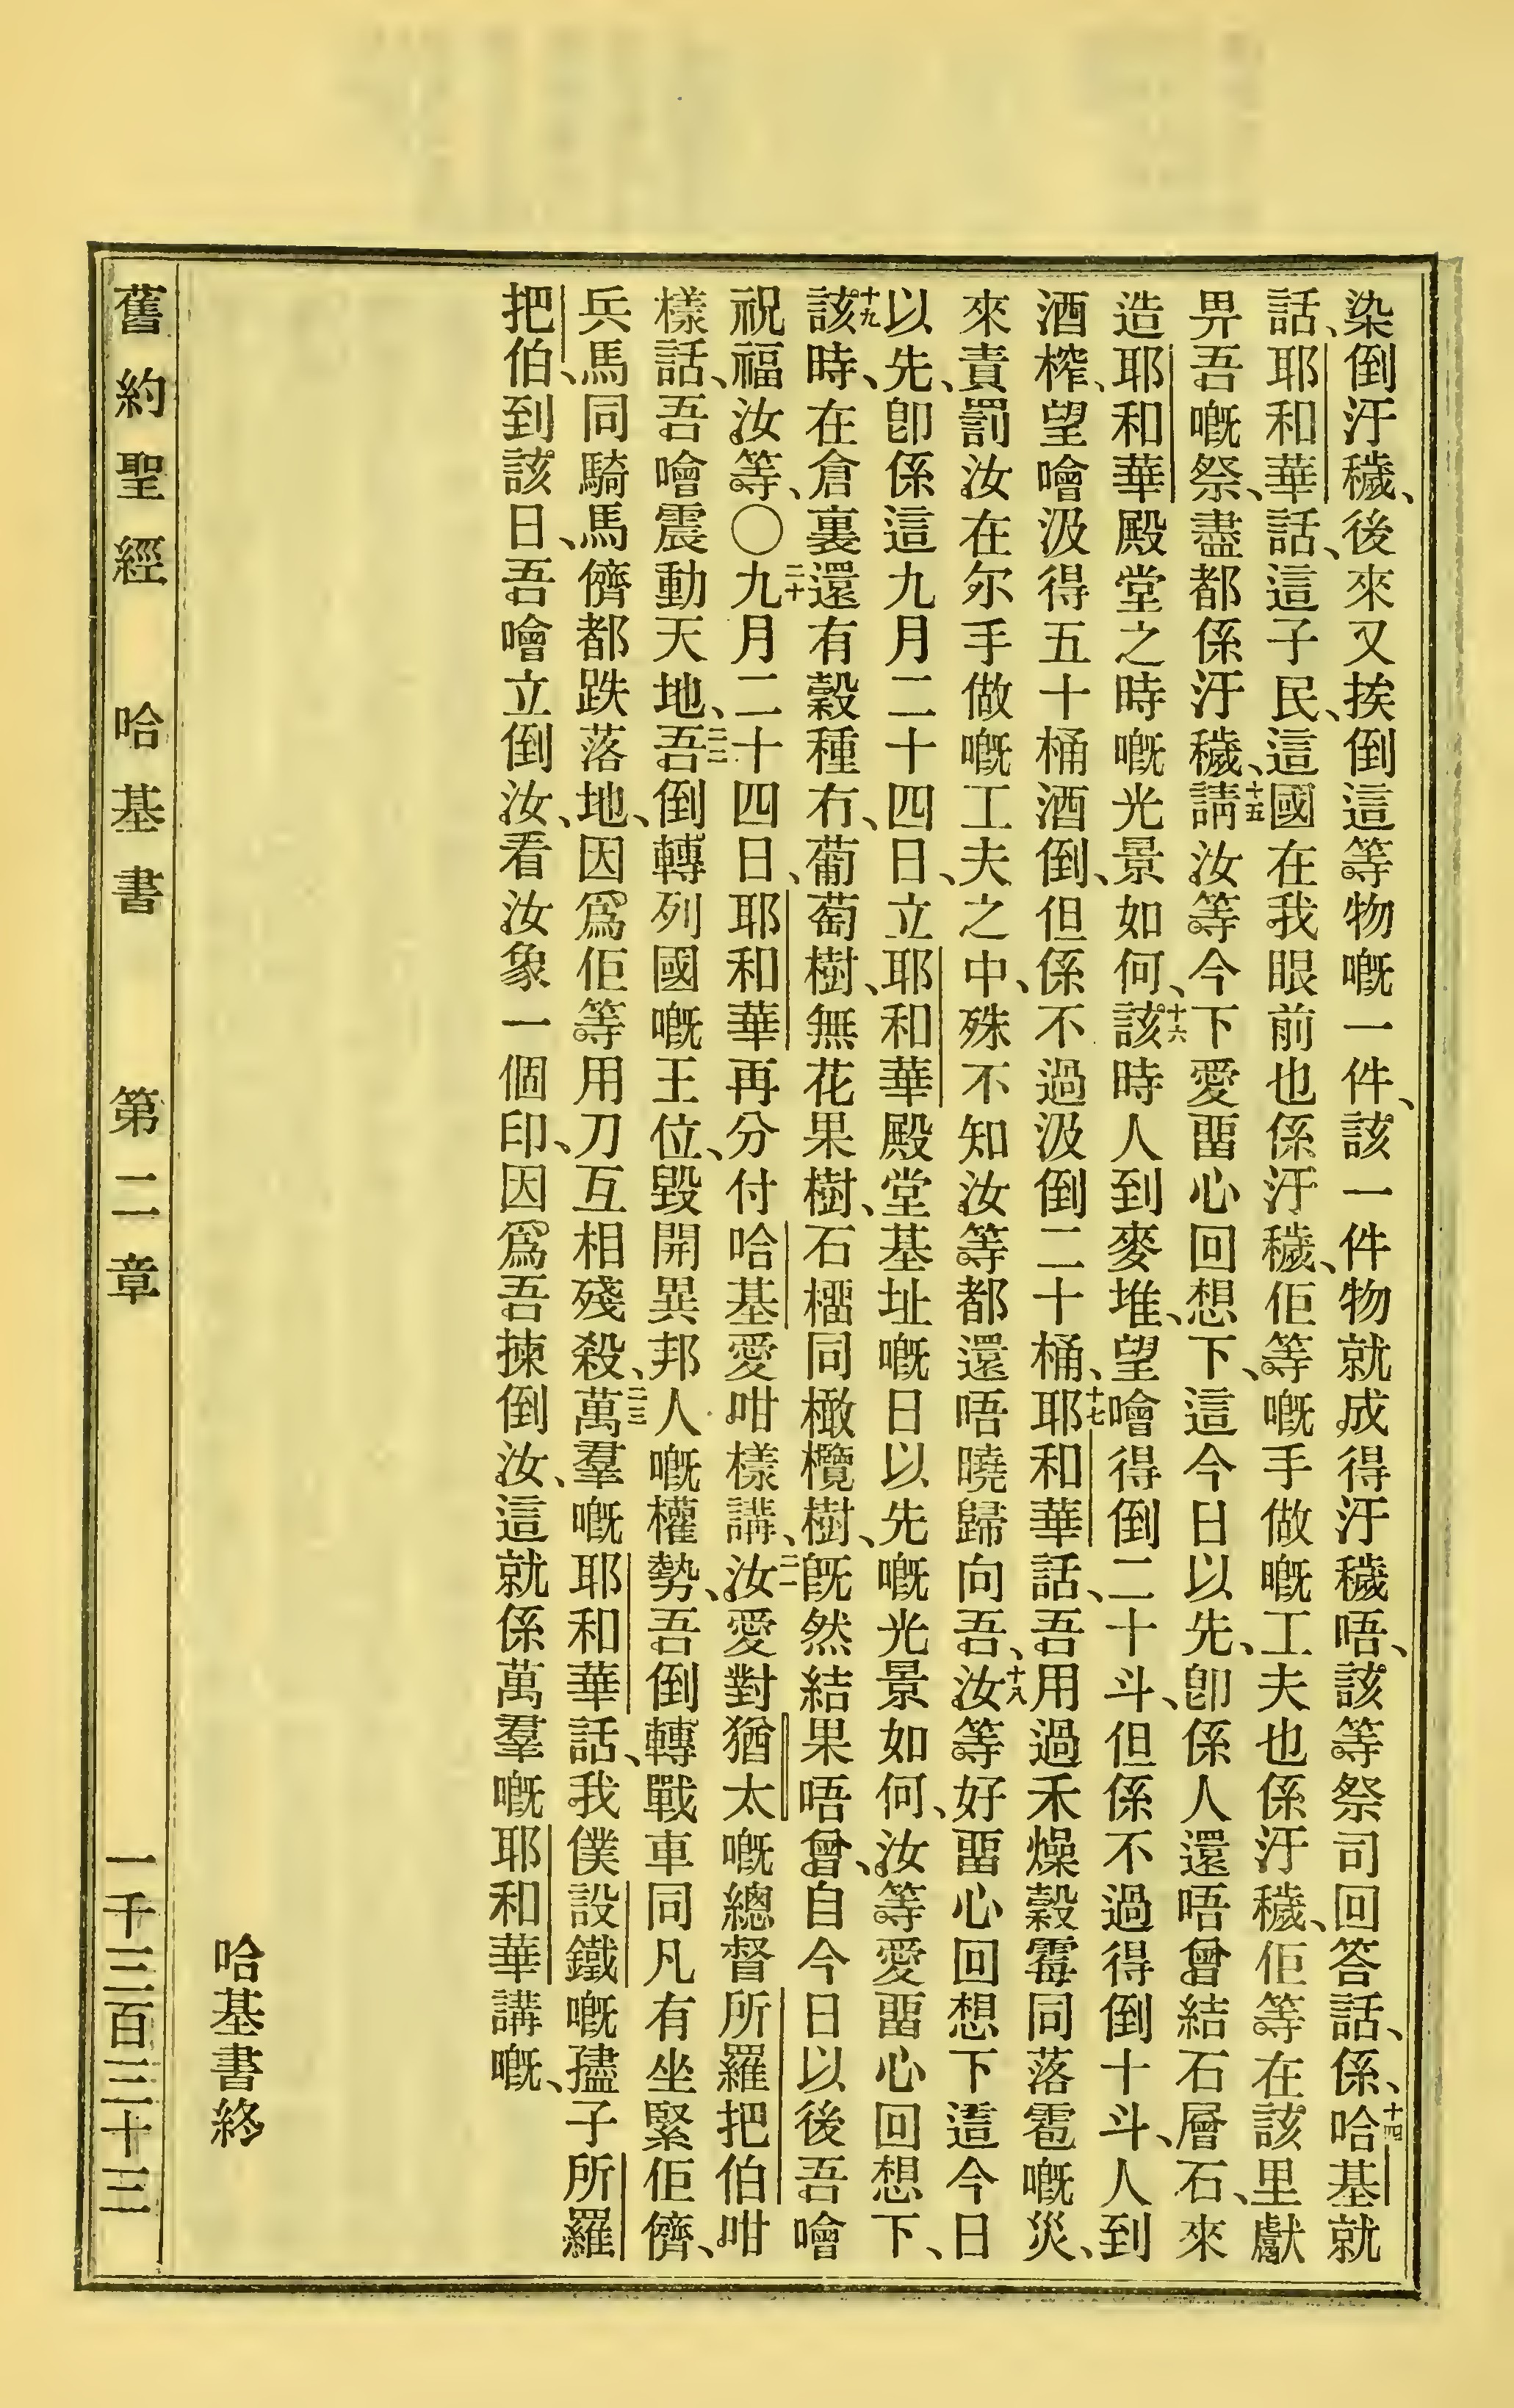 染倒汙穢、後來又挨倒這等物嘅一件、該一件物就成得汙穢唔、該等祭司回答話、係、十四哈基就
話、耶和華話、這子民、這國在我眼前也係汙穢、佢等嘅手做嘅工夫也係汙穢、佢等在該里獻
畀吾嘅祭、盡都係汙穢、十五請汝等今下愛畱心回想下、這今日以先、卽係人還唔曾結石層石、來
造耶和華殿堂之時嘅光景如何、十六該時人到麥堆、望噲得倒二十斗、但係不過得倒十斗、人到
酒榨、望噲汲得五十桶酒倒、但係不過汲倒二十桶、十七耶和華話、吾用過禾燥穀霉同落雹嘅災、
來責罰汝在尔手做嘅工夫之中、殊不知汝等都還唔曉歸向吾、十八汝等好畱心回想下這今日
以先、卽係這九月二十四日、立耶和華殿堂基址嘅日以先嘅光景如何、汝等愛畱心回想下、
十九該時、在倉裏還有穀種冇、葡萄樹、無花果樹、石橊同橄欖樹、旣然結果唔曾、自今日以後吾噲
祝福汝等、〇二十九月二十四日、耶和華再分付哈基愛咁樣講、二一汝愛對猶太嘅總督所羅把伯咁
樣話、吾噲震動天地、二二吾倒轉列國嘅王位、毀開異邦人嘅權勢、吾倒轉戰車同凡有坐緊佢儕、
兵馬同騎馬儕都跌落地、因爲佢等用刀互相殘殺、二三萬羣嘅耶和華話、我僕設鐵嘅孻子所羅
把伯、到該日、吾噲立倒汝、看汝象一個印、因爲吾揀倒汝、這就係萬羣嘅耶和華講嘅、
哈基書終
舊約聖經　哈基書　第二章　一千三百三十三